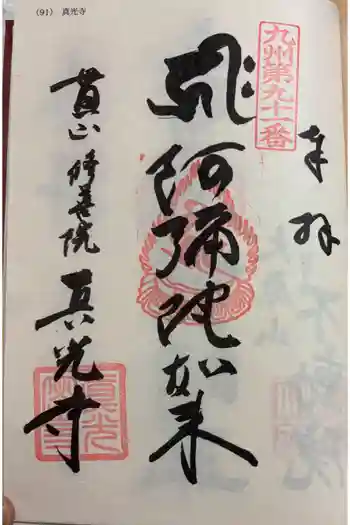 （91）　真光寺
九州第九十一番
奉拝
阿弥陀如来
修善院
真光寺
真光寺印